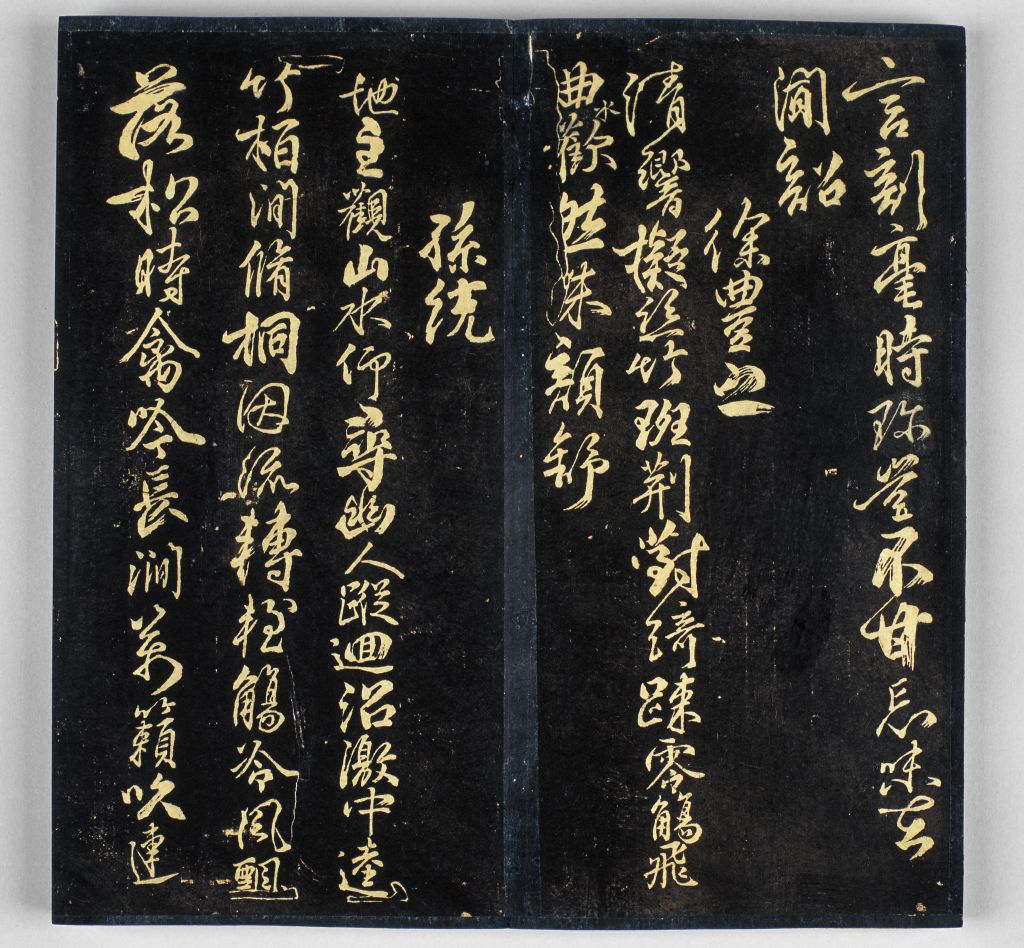 言剖毫時珎豈不甘忘味在
澗韶
徐豐之
清響擬絲竹班荆對綺踈零觴飛
曲水歡然朱顏舒
孫統
地主觀山水仰尋幽人蹤迴沼激中逵
竹栢澗脩桐因流轉輕觴冷風飄
落松時禽吟長澗萬籟吹連